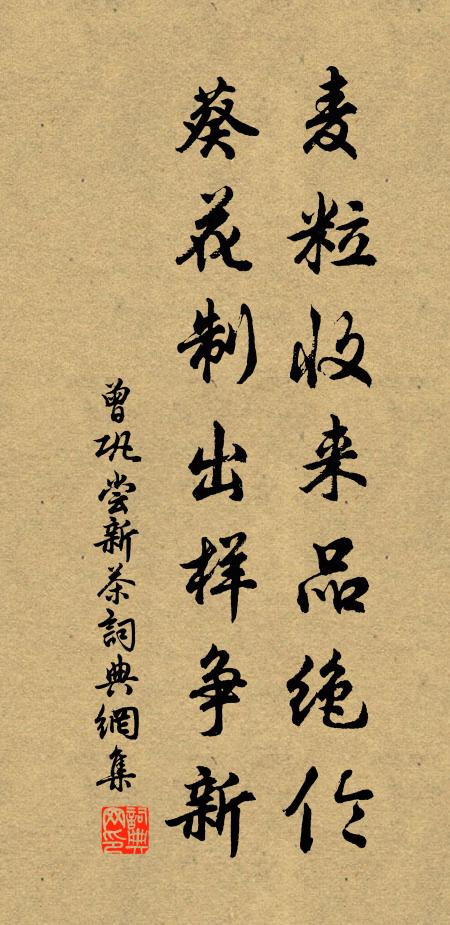 麦粒收来品绝伦
葵花制出样争新
曾巩尝新茶詞典網集
詞典網印